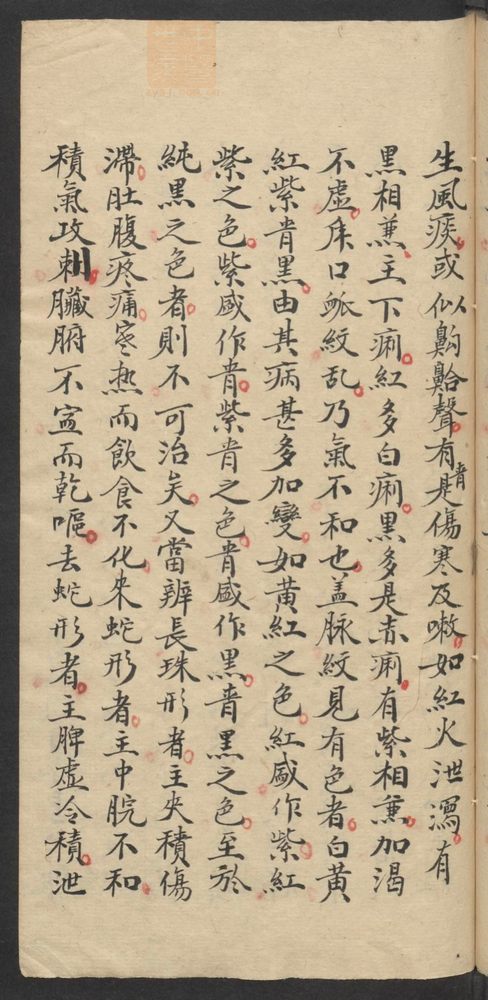 生風痰或似齁𪖙聲有青是傷寒及嗽如紅火泄瀉有
黑相蒹主下痢紅多白痢黑多是赤痢有紫相蒹加渴
不虛虎口脈紋乱乃氣不和也盖脉紋見有色者白黄
紅紫青黑由其病甚多加變如黄紅之色紅盛作紫紅
紫之色紫盛作青紫青之色青盛作黑青黑之色至於
純黑之色者則不可治矣又當辨長珠形者主夾積傷
滞肚腹疼痛寒热而飲食不化来蛇形者主中脘不和
積氣攻刺臟腑不寍而乾嘔去蛇形者主脾虚冷積泄